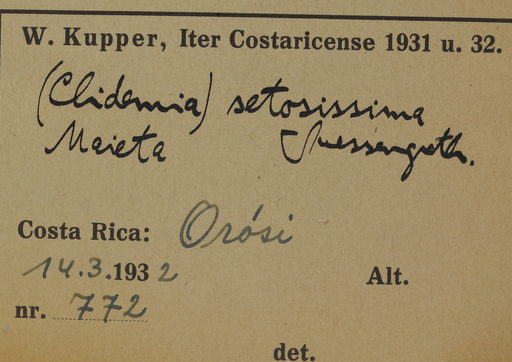 W. Kupper, Iter Costaricense 1931 u. 32.
(Clidemia) setosissima
Maieta Suessenguth.
Costa Rica: Orósi
14.3.1932 Alt.
nr. 772
det.